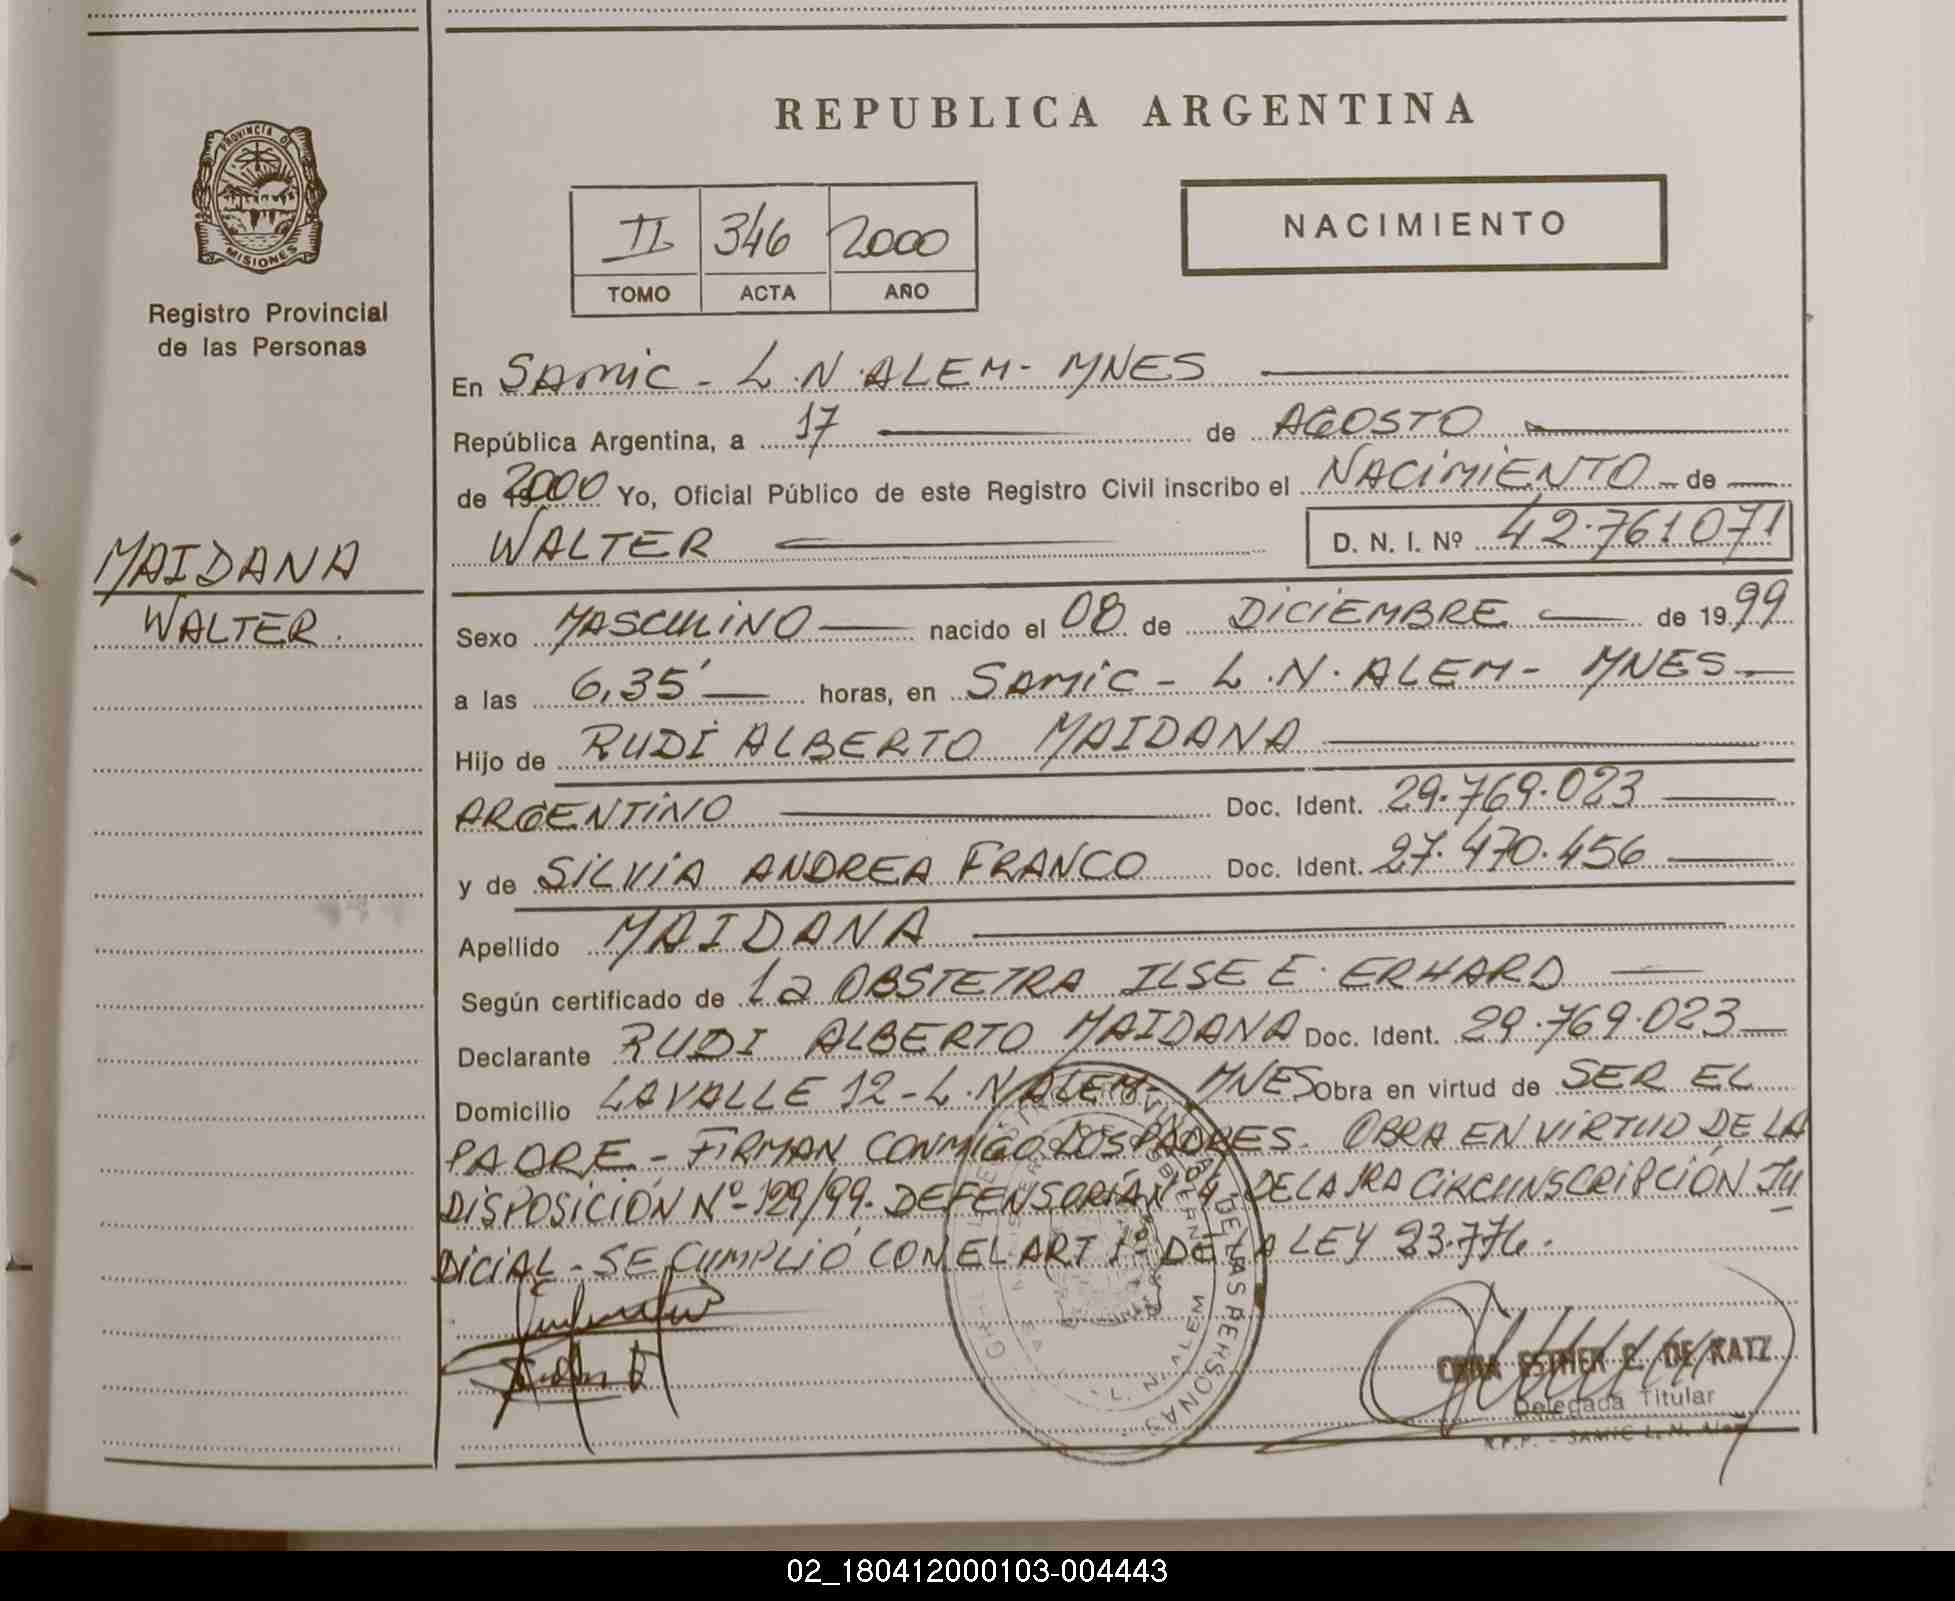 REPUBLICA ARGENTINA
PROVINCIA DE
MISIONES
Registro Provincial
de las Personas
II 346 2000
TOMO ACTA AÑO
NACIMIENTO
En SAMIC - L.N.ALEM- MNES
República Argentina, a 17 de AGOSTO
de 2000 Yo, Oficial Público de este Registro Civil inscribo el NACIMIENTO de
WALTER D. N. I. Nº 42.761071
MAIDANA
WALTER.
Sexo MASCULINO nacido el 08 de DICIEMBRE de 1999
a las 6,35' horas, en SAMIC - L.N.ALEM- MNES
Hijo de RUDI ALBERTO MAIDANA
ARGENTINO Doc. Ident. 29.769.023
y de SILVIA ANDREA FRANCO Doc. Ident. 27.470.456
Apellido MAIDANA
Según certificado de la OBSTETRA ILSE E. ERHARD
Declarante RUDI ALBERTO MAIDANA Doc. Ident. 29.769.023
Domicilio LAVALLE 12-L.N.ALEM- MNES Obra en virtud de SER EL
PADRE - FIRMAN CONMIGO LOS PADRES. OBRA EN VIRTUD DE LA
DISPOSICIÓN Nº-129/99. DEFENSORIA Nº 4 DE LA 1RA CIRCUNSCRIPCIÓN JU
DICIAL - SE CUMPLIÓ CON EL ART 1º DE LA LEY 23.776.
DE LAS PERSONAS
L. N. ALEM
ESTHER E. DE KATZ
Delegada Titular
R.P.P. - SAMIC L. N. Alem
02_180412000103-004443